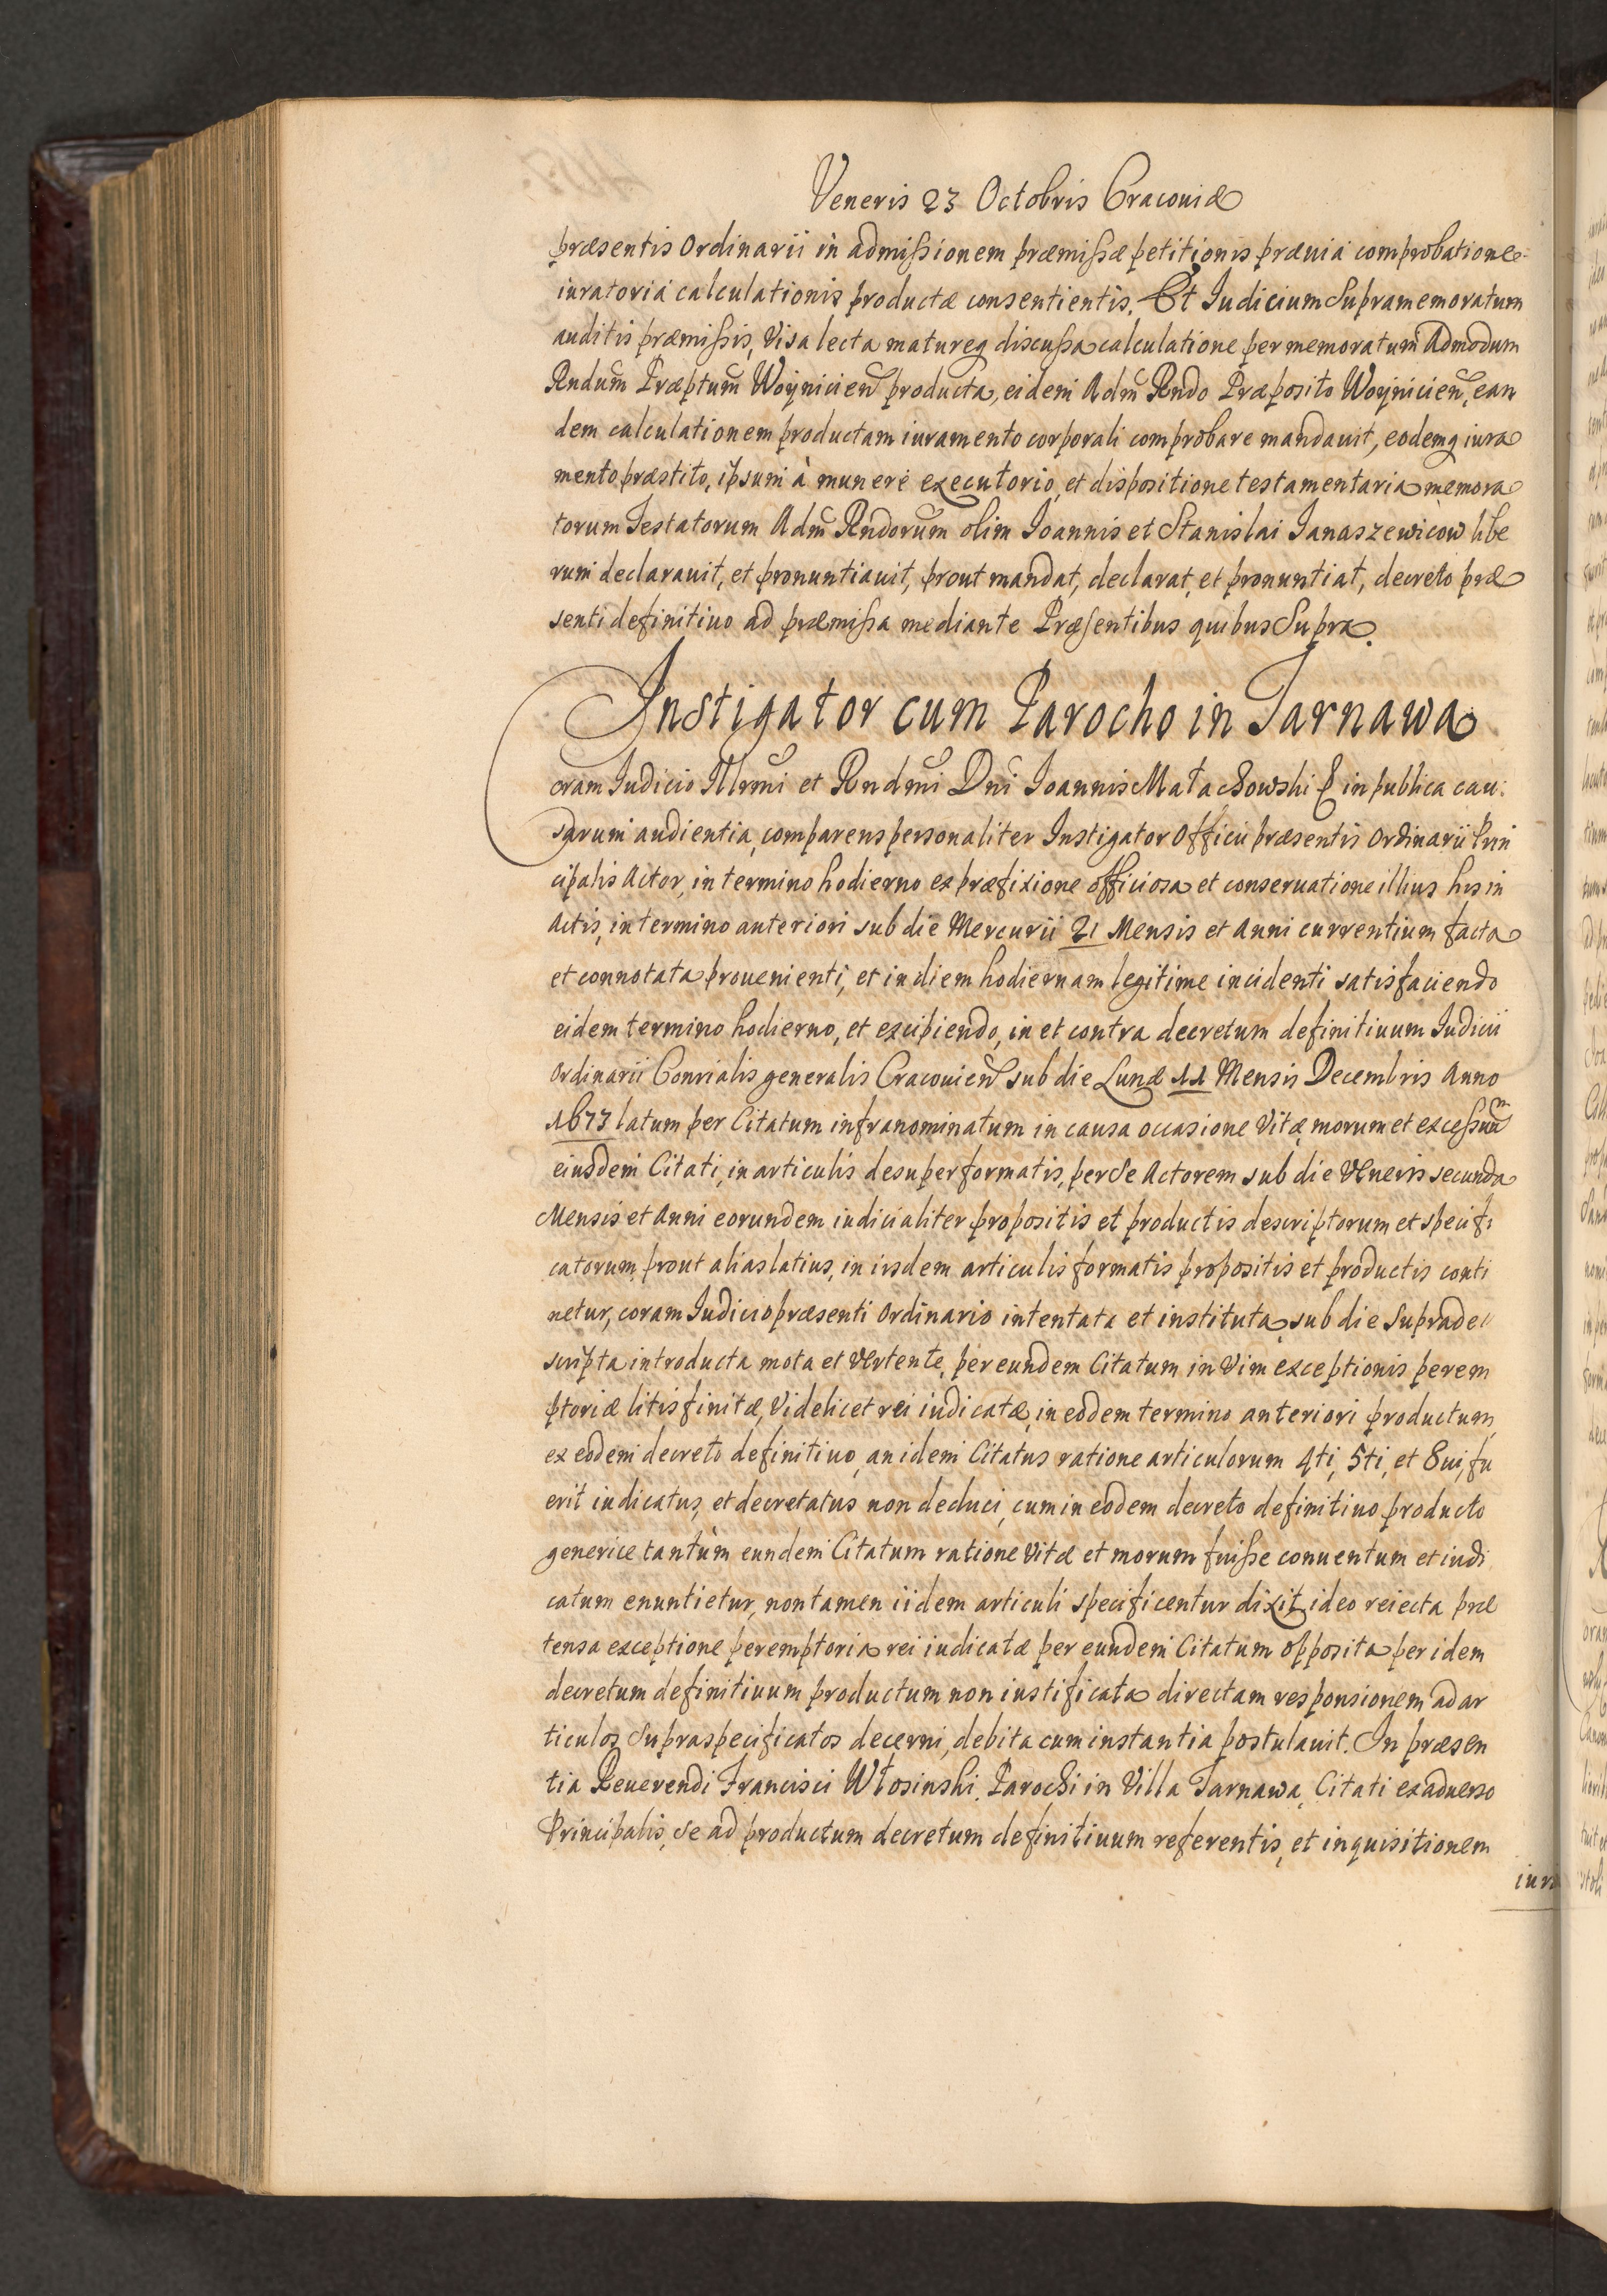 Veneris 23 Octobris Cracouiæ
præsentis Ordinarii in admissionem præmissæ petitionis præuia comprobatione
iuratoria calculationis productæ consentientis. Et Iudicium Supramemoratum
auditis præmissis, Visa lecta matureq discussa calculatione per memoratum Admodum
Rndum Præptum Woyniciēn producta, eidem Adm Rndo Præposito Woyniciēn, ean
dem calculationem productam iuramento corporali comprobare mandauit, eodemq iura
mento præstito, ipsum à munere executorio, et dispositione testamentaria memora
torum Testatorum Adm Rndorum olim Ioannis et Stanislai Ianaszewicow libe
rum declarauit, et pronuntiauit, prout mandat, declarat, et pronuntiat, decreto præ
senti definitiuo ad præmissa mediante Præsentibus quibus Supra.
Instigator cum Parocho in Tarnawa
Coram Iudicio Illrmi et Rndmi Dni Ioannis Małachowski & in publica cau:
sarum audientia, comparens personaliter Instigator Officii præsentis Ordinarii Prin
cipalis Actor, in termino hodierno ex præfixione officiosa et conseruatione illius his in
Actis, in termino anteriori sub die Mercurii 21 Mensis et Anni currentium facta
et connotata prouenienti, et in diem hodiernam legitime incidenti satisfaciendo
eidem termino hodierno, et excipiendo, in et contra decretum definitiuum Iudicii
Ordinarii Consrialis generalis Cracouiēn sub die Lunæ 11 Mensis Decembris Anno
1673 latum per Citatum infranominatum in causa occasione Vitæ morum et excessuum
eiusdem Citati, in articulis desuper formatis, per se Actorem sub die Veneris secunda
Mensis et Anni eorundem iudicialiter propositis et productis descriptorum et specifi
catorum prout alias latius, in iisdem articulis formatis propositis et productis conti
netur, coram Iudicio præsenti Ordinario intentata et instituta, sub die supra de
scripta introducta mota et Vertente, per eundem Citatum in Vim exceptionis perem
ptoriæ litis finitæ, Videlicet rei iudicatæ, in eodem termino anteriori productum,
ex eodem decreto definitiuo, an idem Citatus ratione articulorum 4ti, 5ti, et 8ui, fu
erit iudicatus, et decretatus non deduci, cum in eodem decreto definitiuo producto
generice tantùm eundem Citatum ratione Vitæ et morum fuisse conuentum et iudi
catum enuntietur, non tamen iidem articuli specificentur dixit, ideo reiecta præ
tensa exceptione peremptoria rei iudicatæ per eundem Citatum opposita per idem
decretum definitiuum productum non iustificata directam responsionem ad ar
ticulos Supraspecificatos decerni, debita cum instantia postulauit. In præsen
tia Reuerendi Francisci Włosinski, Parochi in Villa Tarnawa, Citati ex aduerso
Principalis, se ad productum decretum definitiuum referentis, et inquisitionem
iura